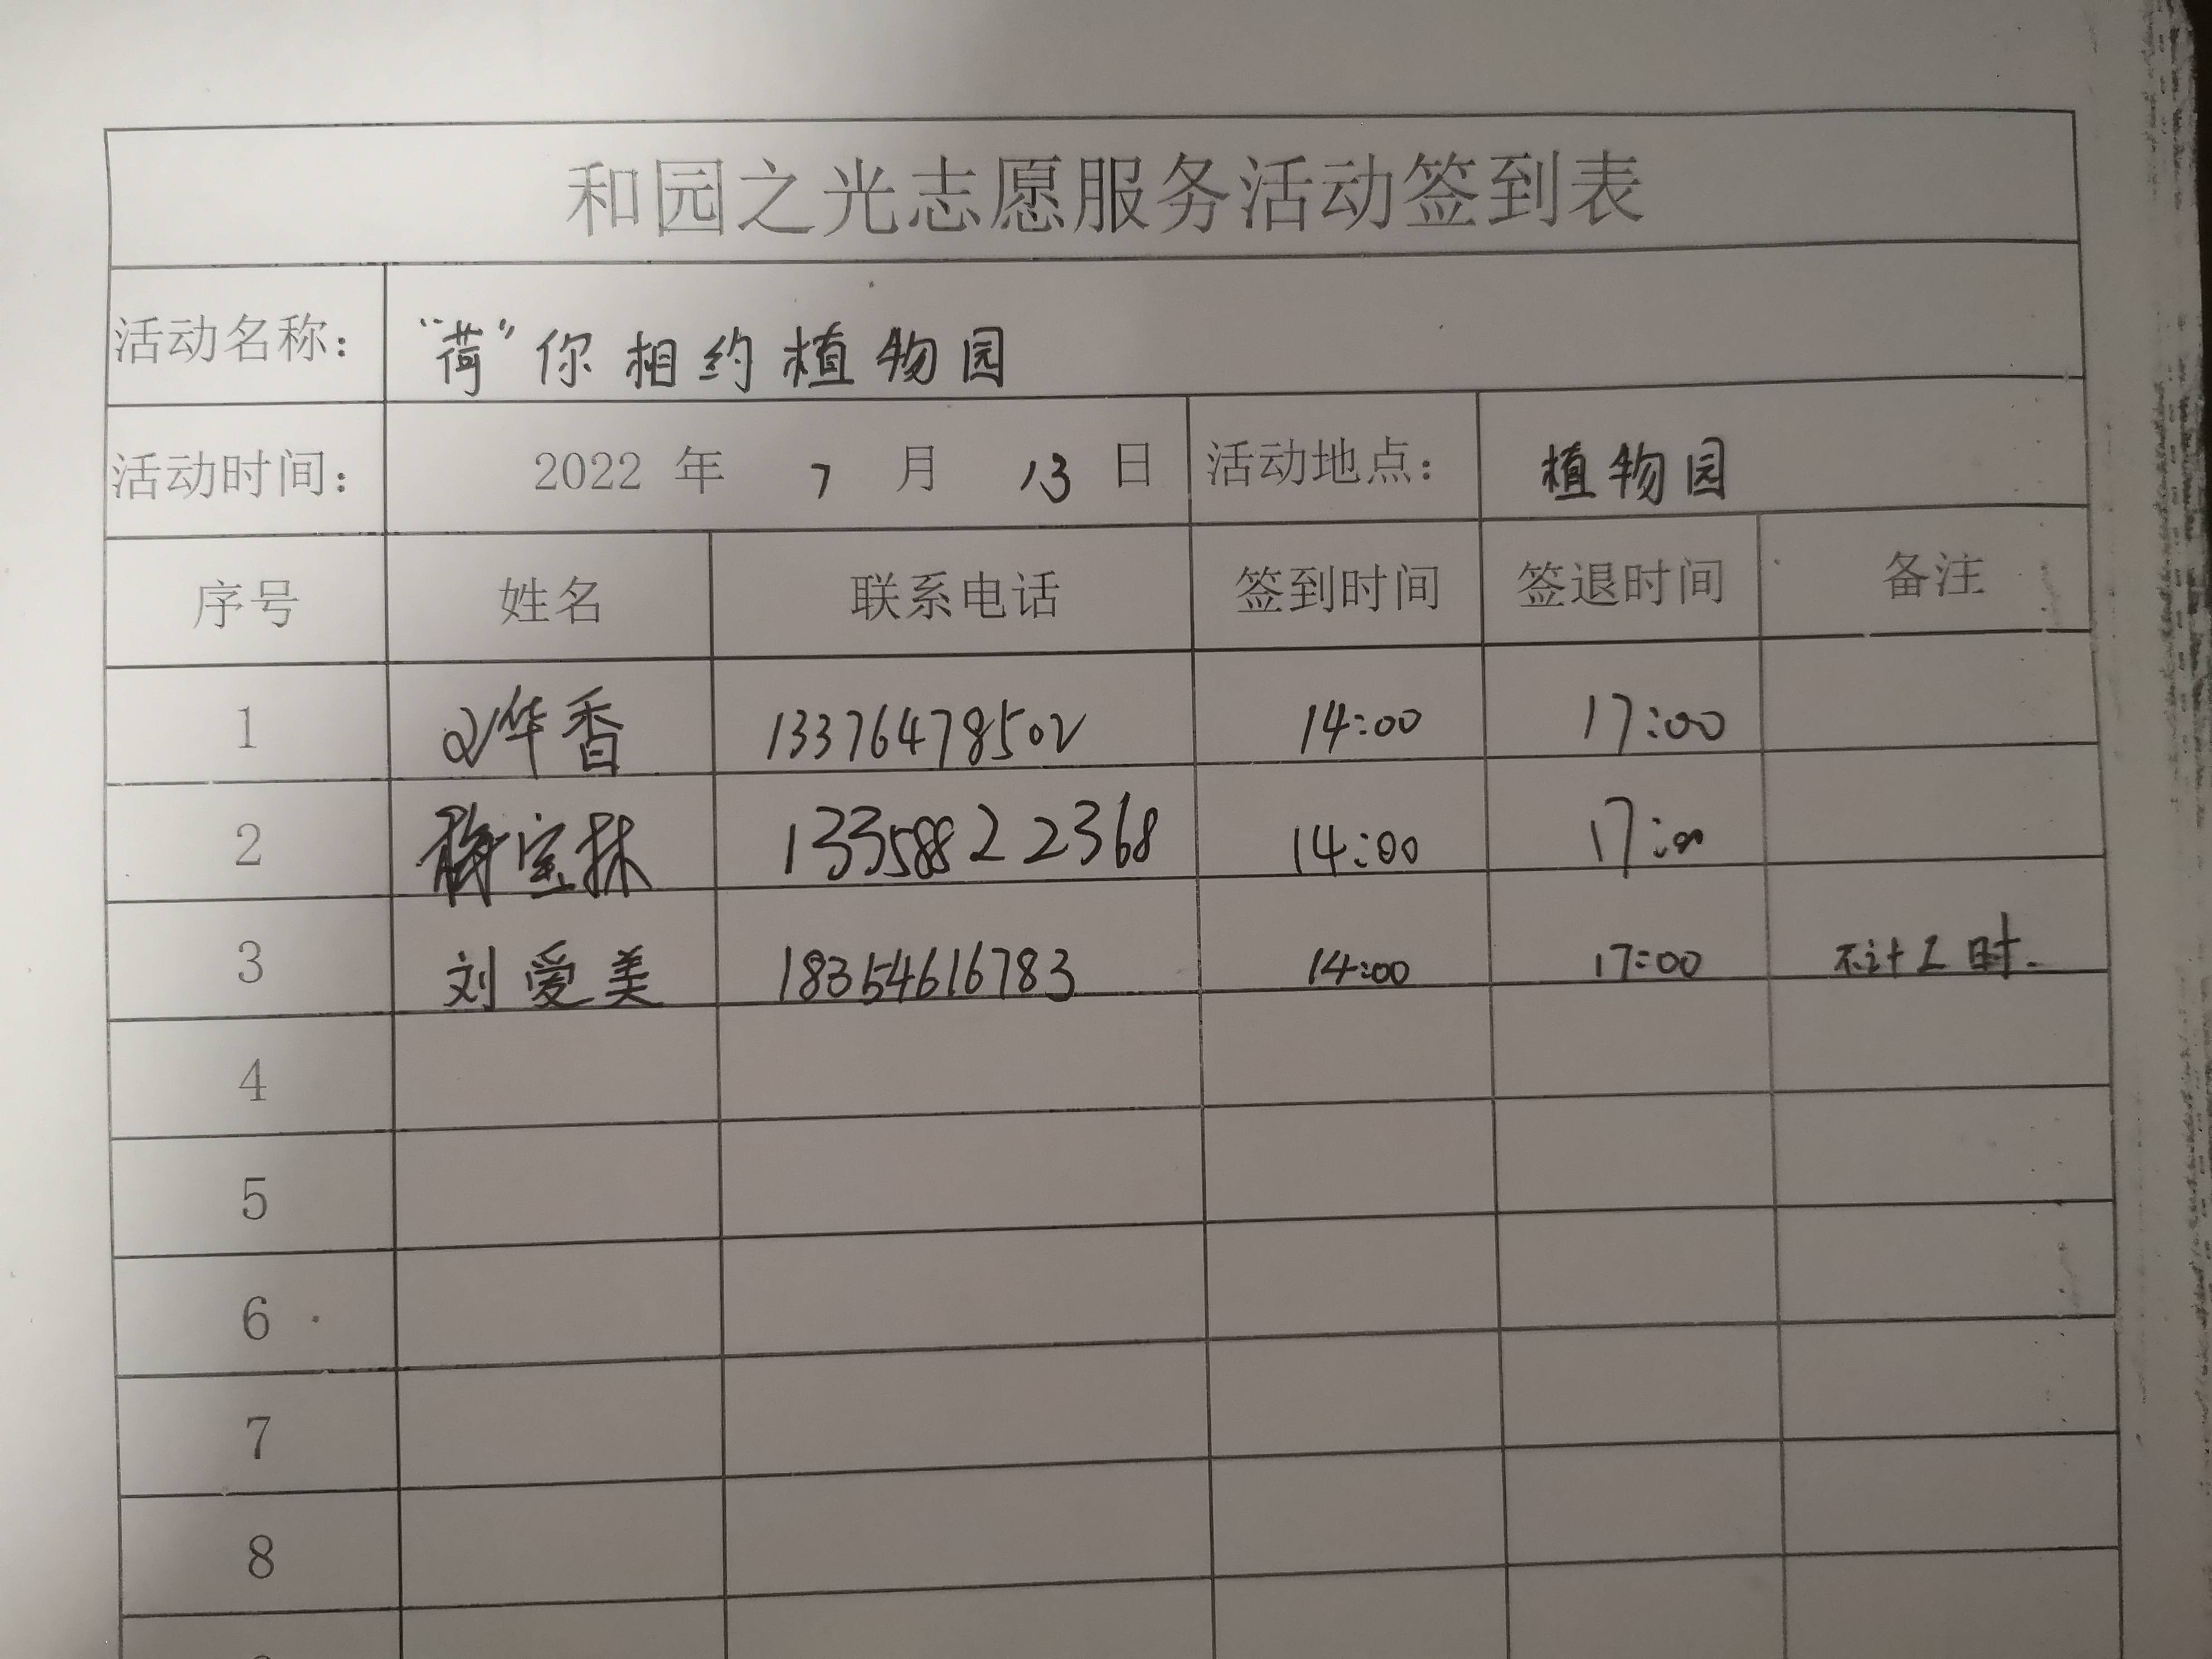 和园之光志愿服务活动签到表
活动名称： “荷”你相约植物园
活动时间： 2022 年 7 月 13 日 活动地点： 植物园
序号 姓名 联系电话 签到时间 签退时间 备注
1 华香 13376478502 14:00 17:00
2 宝林 13358822368 14:00 17:00
3 刘爱美 18354616783 14:00 17:00 不计工时.
4
5
6
7
8